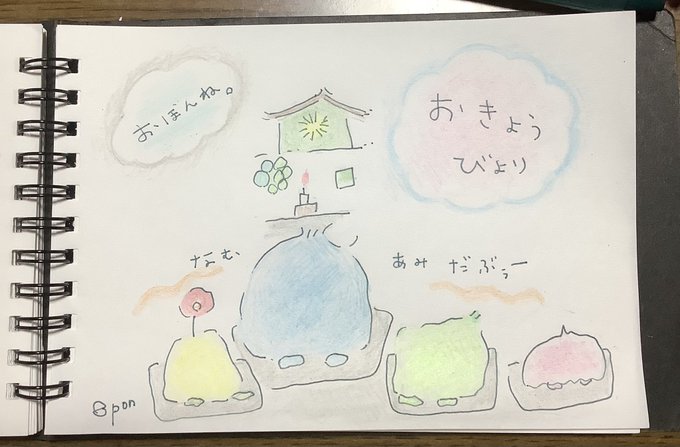 おぼんね。
おきょう
びより
なむ
あみ だぶぅー
Bpon